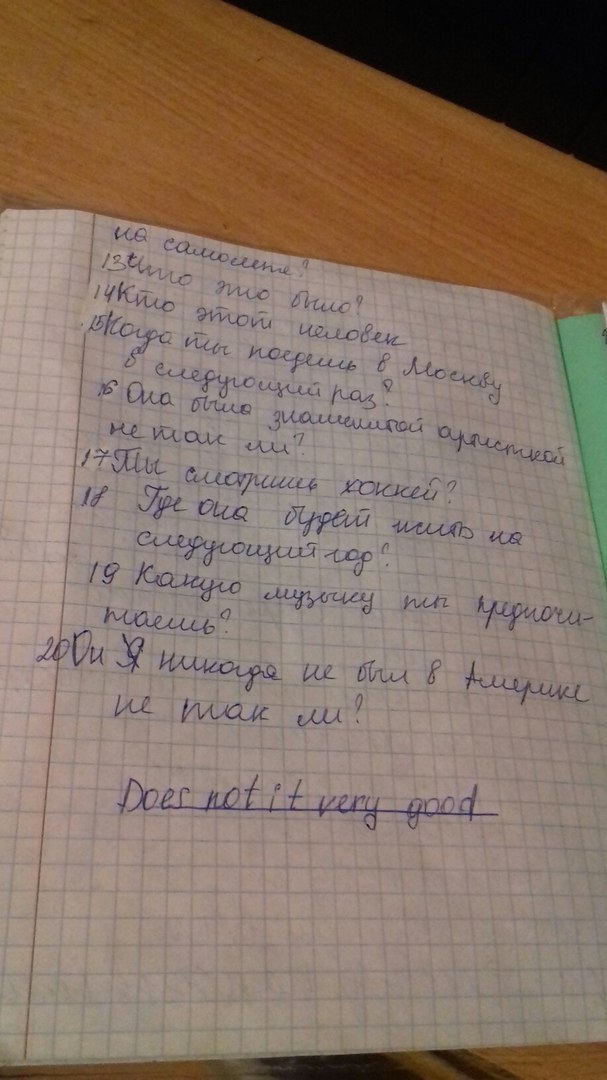 на самолете?
13 Что это было?
14 Кто этот человек
15 Когда ты поедешь в Москву
в следующий раз?
16 Она была знаменитой артисткой
не так ли?
17 Ты смотришь хоккей?
18 Где она будет жить на
следующий год?
19 Какую музыку ты предпочи-
таешь?
20 Он Я никогда не был в Америке
не так ли?
Does not it very good